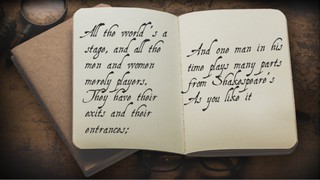 All the world's a
stage, and all the
men and women
merely players.
They have their
exits and their
entrances;
And one man in his
time plays many parts
from Shakespeare's
As you like it